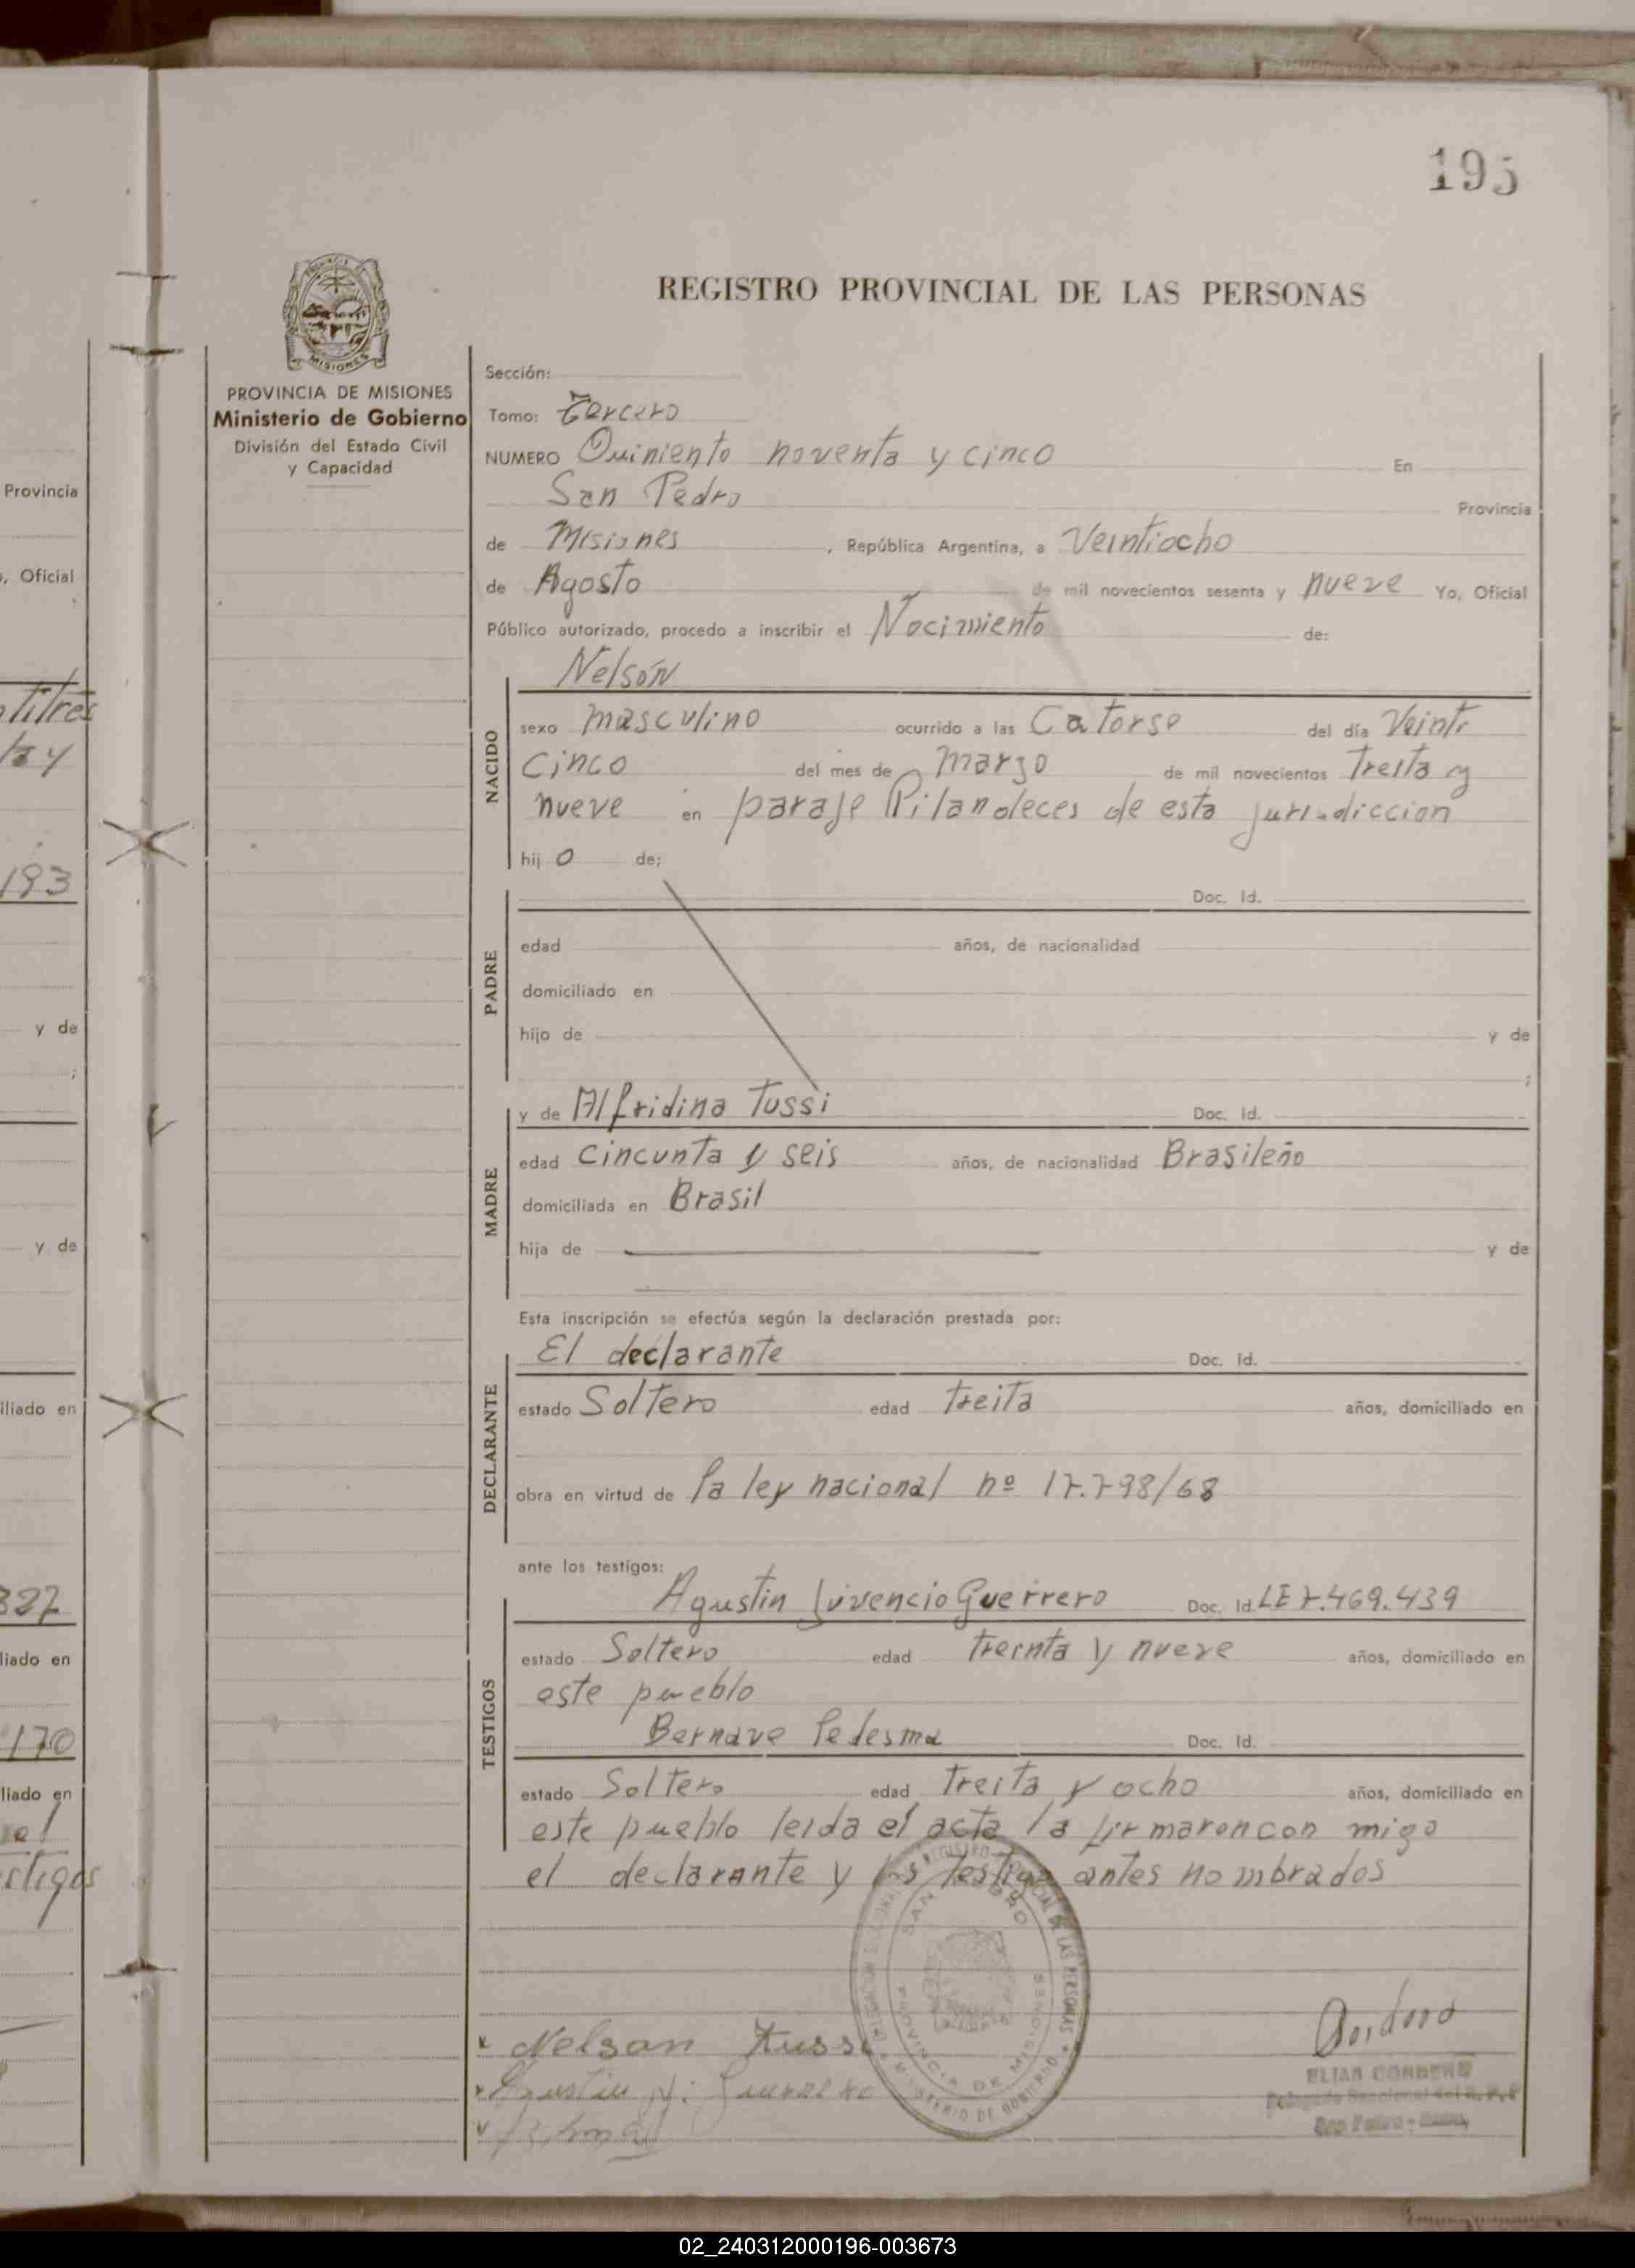 195
REGISTRO PROVINCIAL DE LAS PERSONAS
MISIONES
PROVINCIA DE MISIONES
Ministerio de Gobierno
División del Estado Civil
y Capacidad
Sección:
Tomo: Tercero
NUMERO Quiniento noventa y cinco En
San Pedro Provincia
de Misiones , República Argentina, a Veintiocho
de Agosto de mil novecientos sesenta y nueve Yo, Oficial
Público autorizado, procedo a inscribir el Nacimiento de:
Nelsón
NACIDO
sexo masculino ocurrido a las Catorse del día Veinti
cinco del mes de marzo de mil novecientos Treita y
nueve en paraje de esta jurisdiccion
hij o de;
Doc. Id.
PADRE
edad años, de nacionalidad
domiciliado en
hijo de y de
;
y de Alfridina Tussi Doc. Id.
MADRE
edad cincunta y seis años, de nacionalidad Brasileño
domiciliada en Brasil
hija de y de
Esta inscripción se efectúa según la declaración prestada por:
El declarante Doc. Id.
DECLARANTE
estado Soltero edad treita años, domiciliado en
obra en virtud de la ley nacional nº 17.798/68
ante los testigos:
Agustin Juvencio Guerrero Doc. Id. LE 7.469.439
TESTIGOS
estado Soltero edad treinta y nueve años, domiciliado en
este pueblo
Bernave Ledesma Doc. Id.
estado Soltero edad Treita y ocho años, domiciliado en
este pueblo leida el acta la firmaron con migo
el declarante y los testigo antes nombrados
SAN PEDRO
PROVINCIA DE MISIONES
MINISTERIO DE GOBIERNO
Nelson Tussi
ELIAS CORDERO
Provincia
, Oficial
193
y de
;
y de
iliado en
327
liado en
170
liado en
02_240312000196-003673